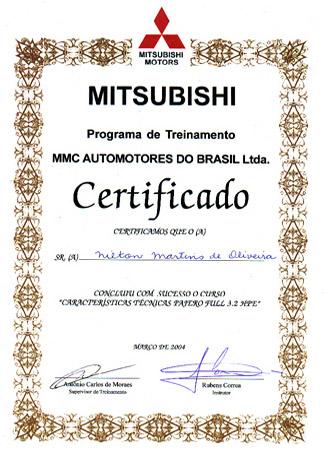 MITSUBISHI
MOTORS
MITSUBISHI
Programa de Treinamento
MMC AUTOMOTORES DO BRASIL Ltda.
Certificado
CERTIFICAMOS QUE O (A)
SR. (A) Nilton Martins de Oliveira
CONCLUIU COM SUCESSO O CURSO
"CARACTERÍSTICAS TÉCNICAS PAJERO FULL 3.2 HPE"
MARÇO DE 2004
Antônio Carlos de Moraes
Supervisor de Treinamento
Rubens Correa
Instrutor